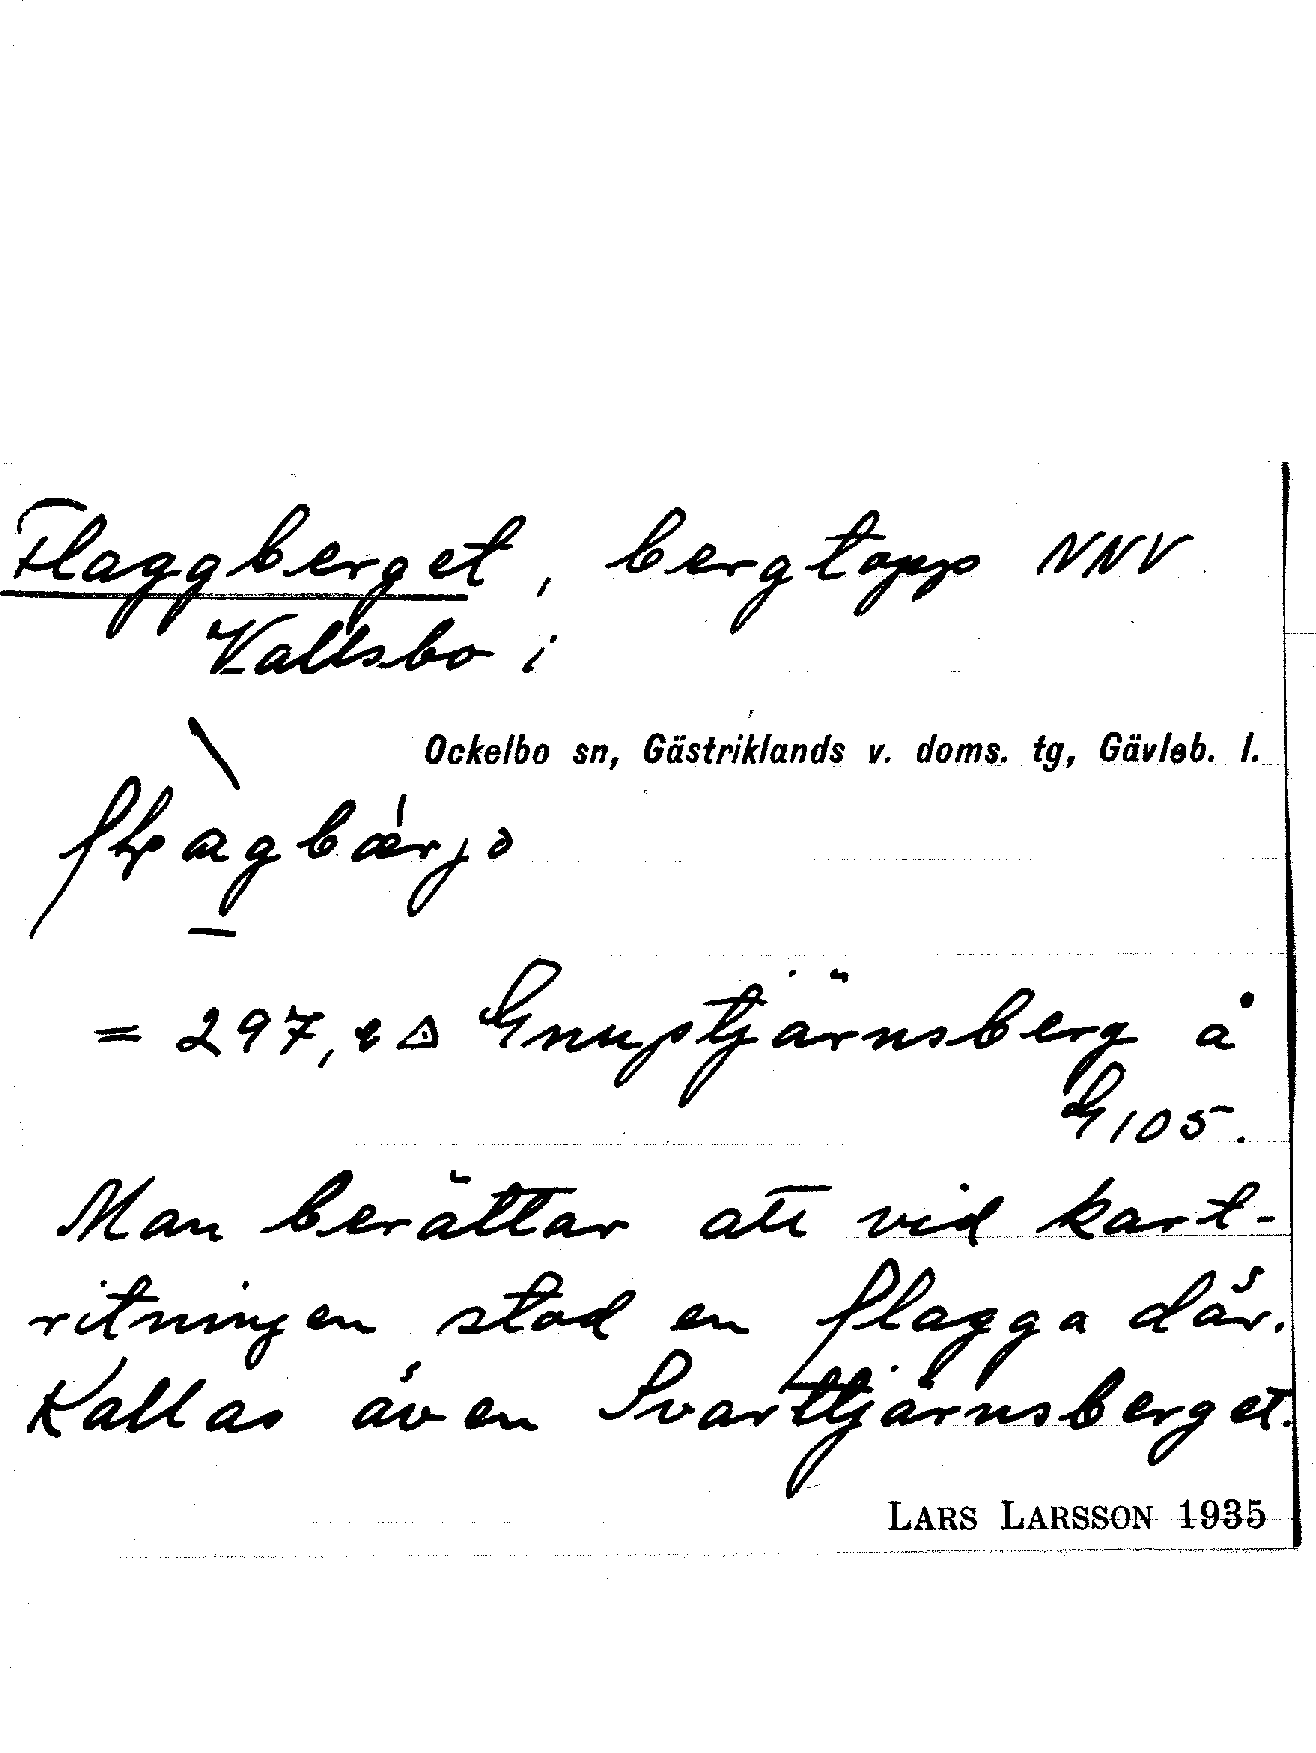 Flaggberget, bergtopp NNV
Vallsbo i
Ockelbo sn, Gästriklands v. doms. tg, Gävleb. l.
= 297, △ Gnuptjärnsberg å
G 105.
Man berättar att vid kart-
ritningen stod en flagga där.
Kallas även Svarttjärnsberget.
LARS LARSSON 1935